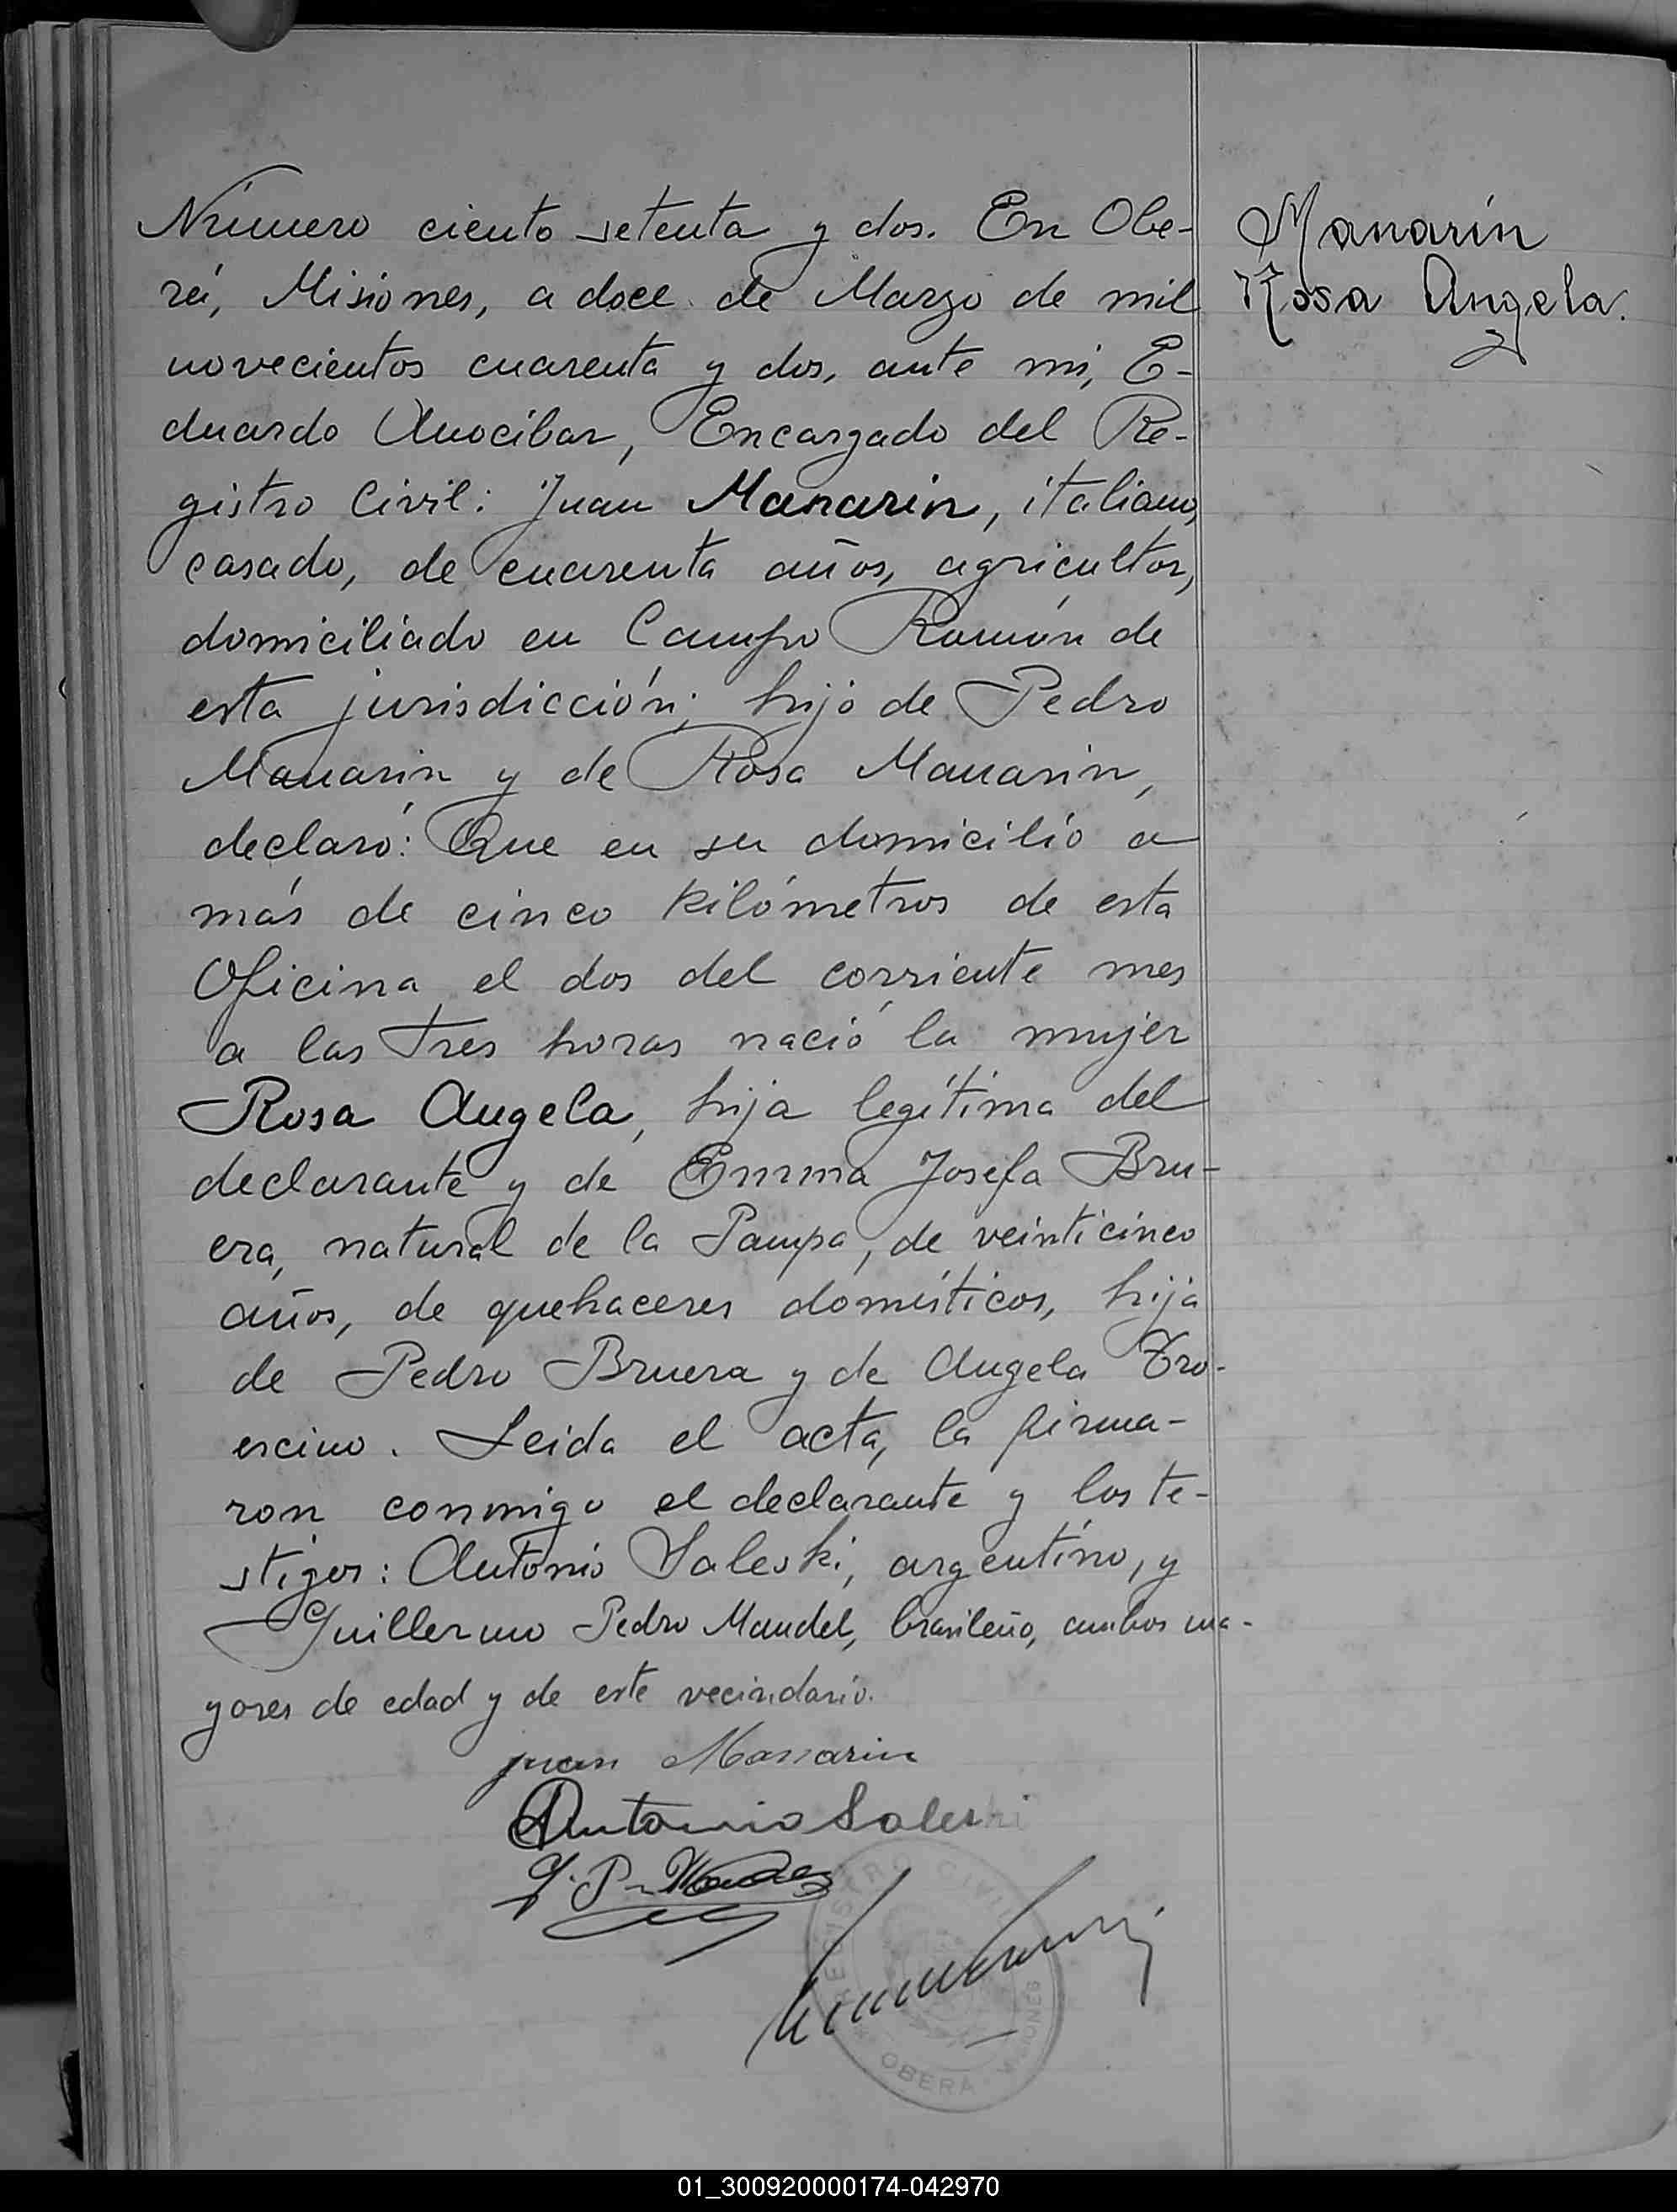 Número ciento setenta y dos. En Obe-
rá, Misiones, a doce de Marzo de mil
novecientos cuarenta y dos, ante mi, E-
duardo Anocibar, Encargado del Re-
gistro Civil: Juan Manarin, italiano,
casado, de cuarenta años, agricultor,
domiciliado en Campo Ramón de
esta jurisdicción, hijo de Pedro
Manarin y de Rosa Manarin,
declaró: Que en su domicilio a
más de cinco kilómetros de esta
Oficina el dos del corriente mes
a las tres horas nació la mujer
Rosa Angela, hija legítima del
declarante y de Emma Josefa Bru-
era, natural de la Pampa, de veinticinco
años, de quehaceres domésticos, hija
de Pedro Bruera y de Angela Tro-
escino. Leida el acta, la firma-
ron conmigo el declarante y los te-
stigos: Antonio Saleski, argentino, y
Guillermo Pedro Mandel, brasileño, ambos ma-
yores de edad y de este vecindario.
Manarin
Rosa Angela.
juan Manarin
Antonio Saleski
G. P.
REGISTRO CIVIL
OBERA MISIONES
01_300920000174-042970